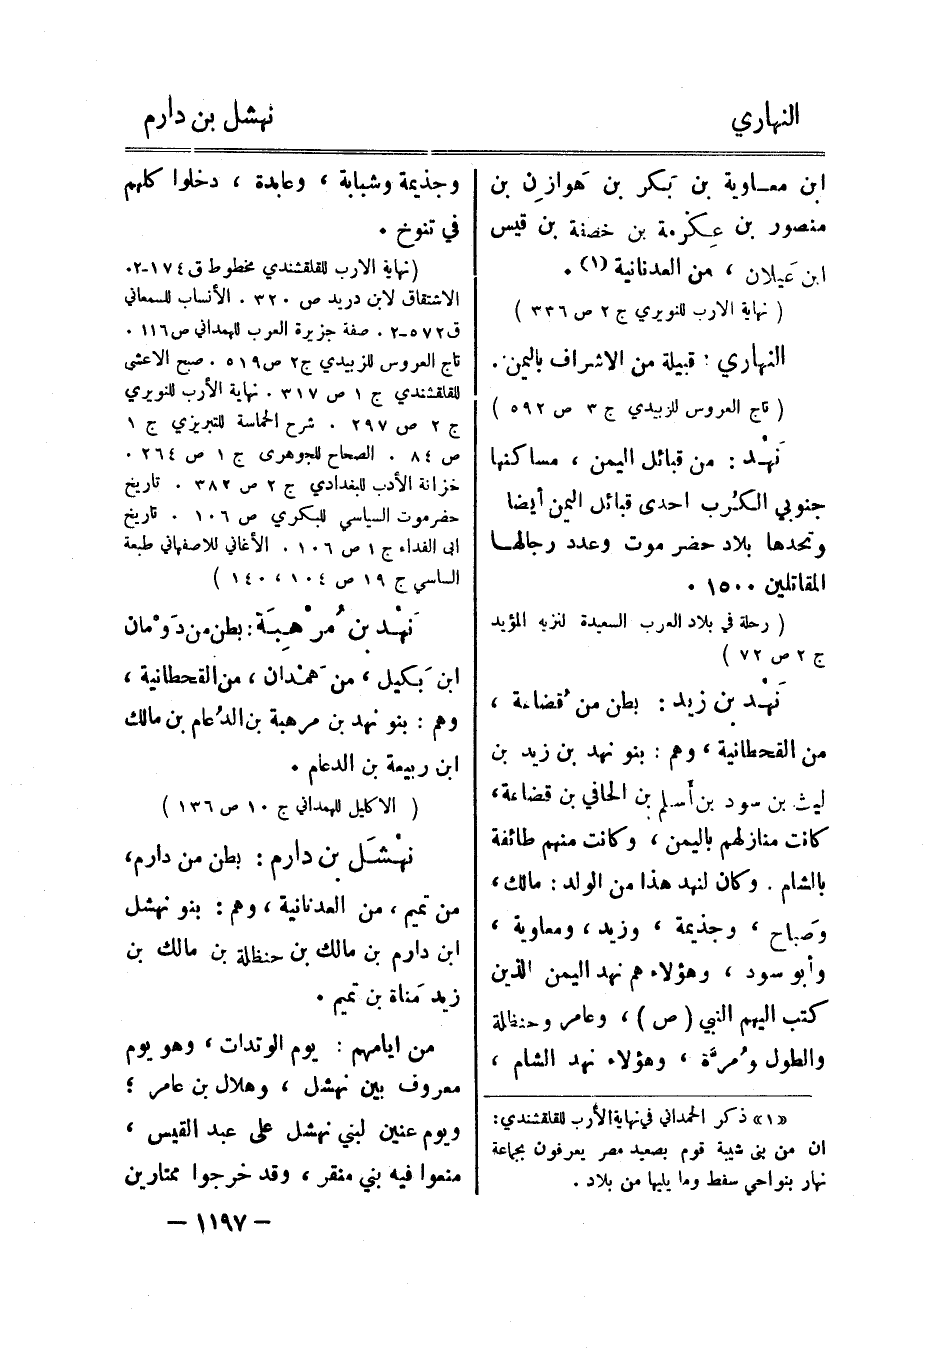 النهاري
نهشل بن دارم
ابن معاوية بن بَكر بن هَوازِن بن
منصور بن عِكْرمة بن خصَفة بن قيس
ابن عَيلان ، من العدنانية (١) .
( نهاية الارب للنويري ج ٢ ص ٣٣٦ )
النهاري : قبيلة من الاشراف باليمن .
( تاج العروس للزبيدي ج ٣ ص ٥٩٢ )
نَهْد : من قبائل اليمن ، مساكنها
جنوبي الكُرب احدى قبائل اليمن أيضا
وتحدها بلاد حضر موت وعدد رجالها
المقاتلين ١٥٠٠ .
( رحلة في بلاد العرب السعيدة لنزيه المؤيد
ج ٢ ص ٧٢ )
نَهْد بن زيد : بطن من قُضاعة ،
من القحطانية ، وهم : بنو نهد بن زيد بن
ليث بن سود بن أسلم بن الحافي بن قضاعة ،
كانت منازلهم باليمن ، وكانت منهم طائفة
بالشام . وكان لنهد هذا من الولد : مالك ،
وصَباح ، وجذيمة ، وزيد ، ومعاوية ،
وأبو سود ، وهؤلاء هم نهد اليمن الذين
كتب اليهم النبي ( ص ) ، وعامر وحنظلة
والطول ومُرَّة ، وهؤلاء نهد الشام ،
«١» ذكر الحمداني في نهاية الأرب للقلقشندي :
ان من بني شيبة قوم بصعيد مصر يعرفون بجماعة
نهار بنواحي سفط وما يليها من بلاد .
وجذيمة وشبابة ، وعابدة ، دخلوا كلهم
في تنوخ .
( نهاية الارب للقلقشندي مخطوط ق ١٧٤-٢.
الاشتقاق لابن دريد ص ٣٢٠ . الأنساب للسمعاني
ق ٥٧٢-٢ . صفة جزيرة العرب للهمداني ص ١١٦ .
تاج العروس للزبيدي ج ٢ ص ٥١٩ . صبح الاعشى
للقلقشندي ج ١ ص ٣١٧ . نهاية الأرب للنويري
ج ٢ ص ٢٩٧ . شرح الحماسة للتبريزي ج ١
ص ٨٤ . الصحاح للجوهرى ج ١ ص ٢٦٤ .
خزانة الأدب للبغدادي ج ٢ ص ٣٨٢ . تاريخ
حضرموت السياسي للبكري ص ١٠٦ . تاريخ
ابى الفداء ج ١ ص ١٠٦ . الأغاني للاصفهاني طبعة
الساسي ج ١٩ ص ١٠٤ ، ١٤٠ )
نَهْد بن مُرْهِبَة : بطن من دَوْمان
ابن بَكيل ، من هَمْدان ، من القحطانية ،
وهم : بنو نهد بن مرهبة بن الدُعام بن مالك
ابن ربيعة بن الدعام .
( الاكليل للهمداني ج ١٠ ص ١٣٦ )
نَهْشَل بن دارم : بطن من دارم ،
من تميم ، من العدنانية ، وهم : بنو نهشل
ابن دارم بن مالك بن حنظلة بن مالك بن
زيد مَناة بن تميم .
من ايامهم : يوم الوتدات ، وهو يوم
معروف بين نهشل ، وهلال بن عامر ؛
ويوم عنين لبني نهشل على عبد القيس ،
منعوا فيه بني منقر ، وقد خرجوا ممتارين
- ١١٩٧ -